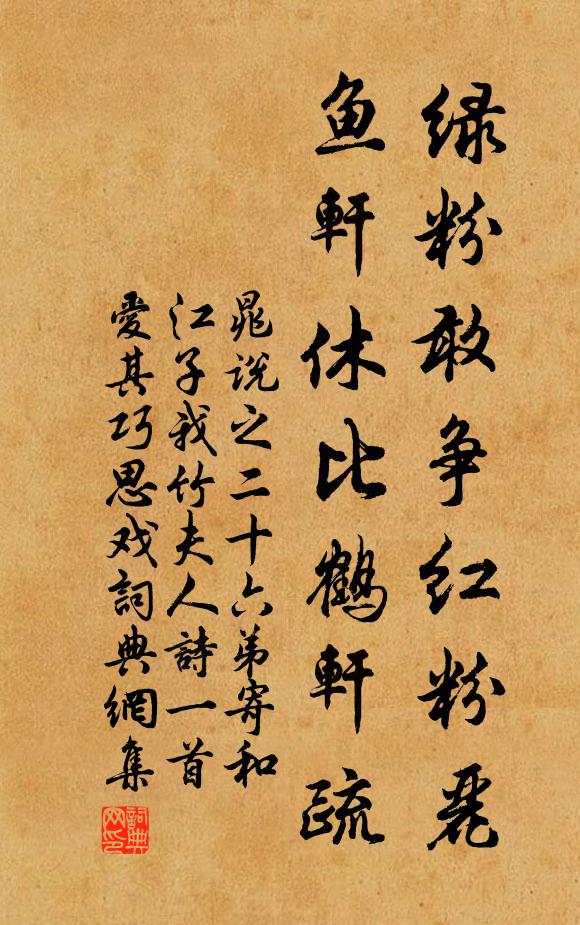 绿粉敢争红粉麗
鱼軒休比鶴軒疏
晁说之二十六弟寄和
江子我竹夫人詩一首
愛其巧思戏詞典網集
詞典
网印